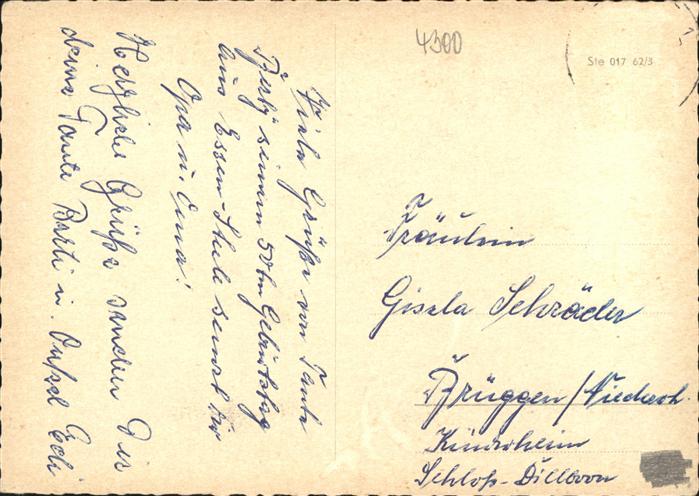 4300
Ste 017 62/3
Viele Grüße von Tante
seinem 50ten Geburtstag
aus Essen-Stele sendet Dir
Opa u. Oma!
Herzliche Grüße senden Dir
deine Tante Berti u. Onkel Edi
Fräulein
Gisela Schräder
Brüggen/Niederrh.
Kinderheim
Schloß-Dilborn